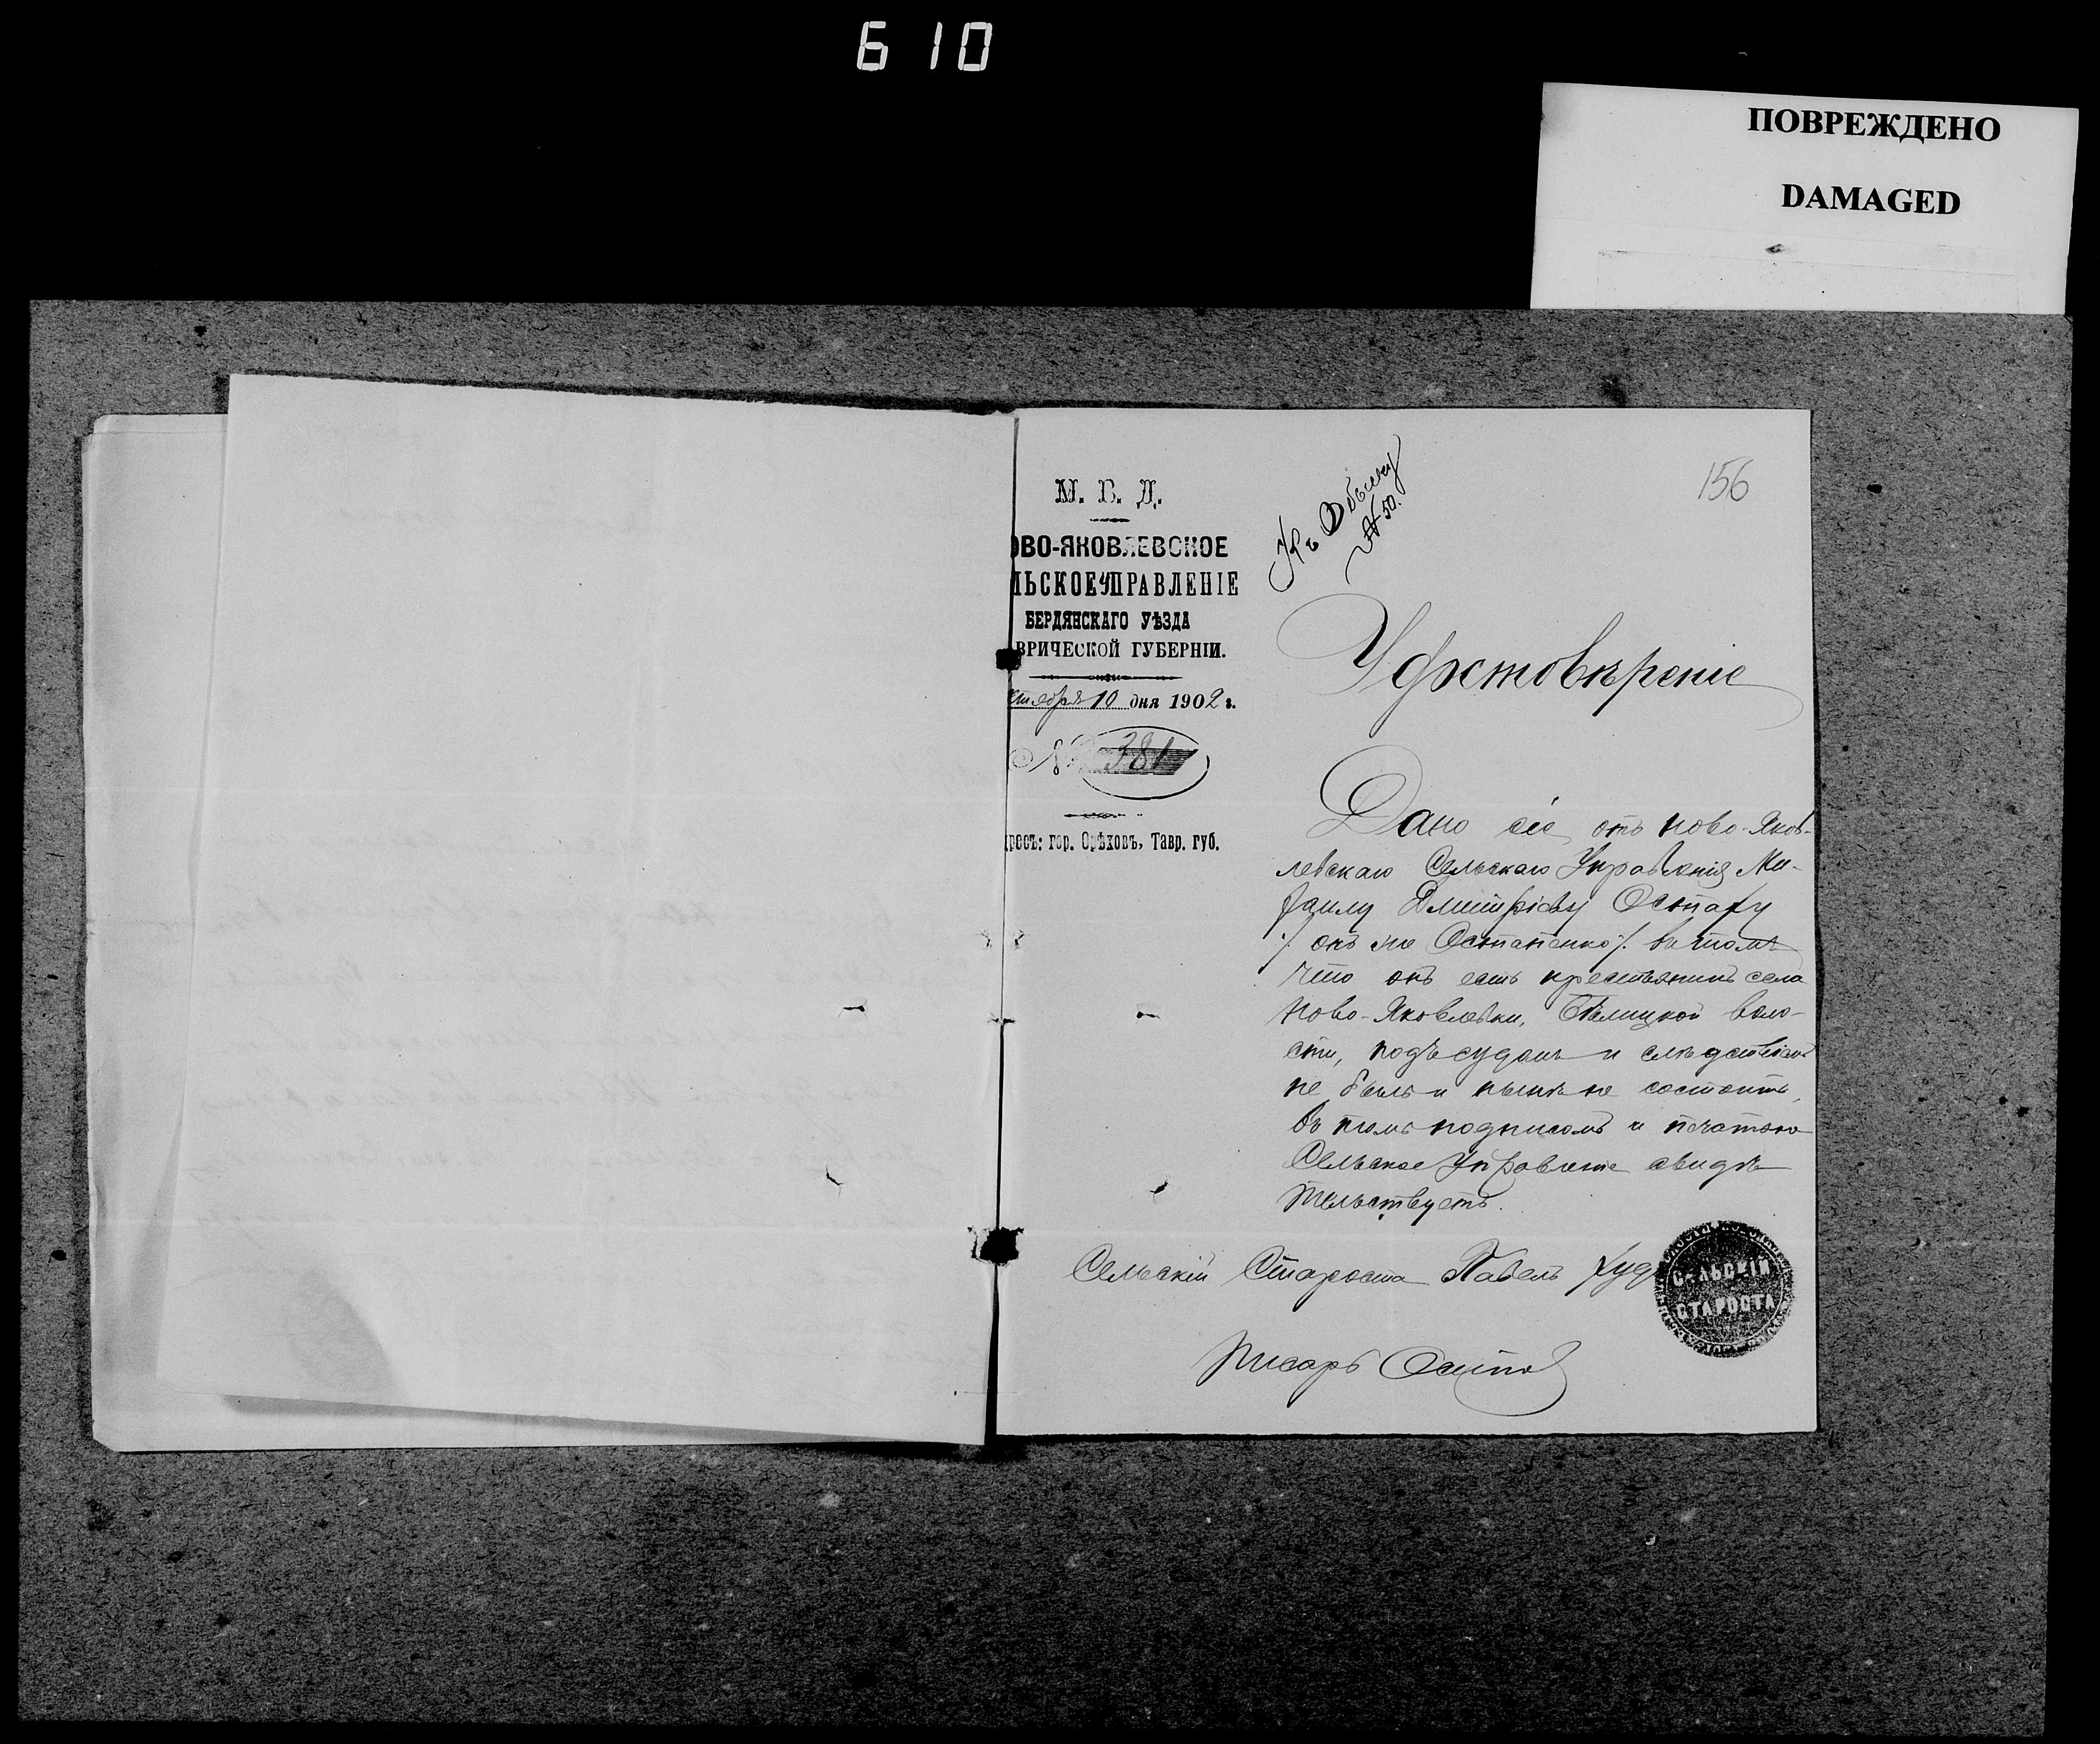 610
ПОВРЕЖДЕНО
DAMAGED
156
М. В. Д.
ОВО-ЯКОВЛЕВСКОЕ
ЛЬСКОЕ УПРАВЛЕНІЕ
БЕРДЯНСКАГО УѢЗДА
ВРИЧЕСКОЙ ГУБЕРНІИ.
ктября 10 дня 1902 г.
№ 381
дресъ: гор. Орѣховъ, Тавр. губ.
Къ
№ 50.
Удостовѣреніе
Дано сіе отъ Ново-Яков-
левскаго Сельскаго Управленія Ми-
хаилу Дмитріеву Остапу
/. онъ же Остапенко ./ въ томъ
что онъ есть крестьянинъ села
Ново-Яковлевки, воло-
сти, подъ судомъ и слѣдствіемъ
не былъ и нынѣ не состоитъ,
въ томъ подписомъ и печатью
Сельское Управленіе свидѣ-
тельствуетъ.
Сельскій Староста Павелъ Худ
СЕЛЬСКІЙ
СТАРОСТА
Писарь Осипов